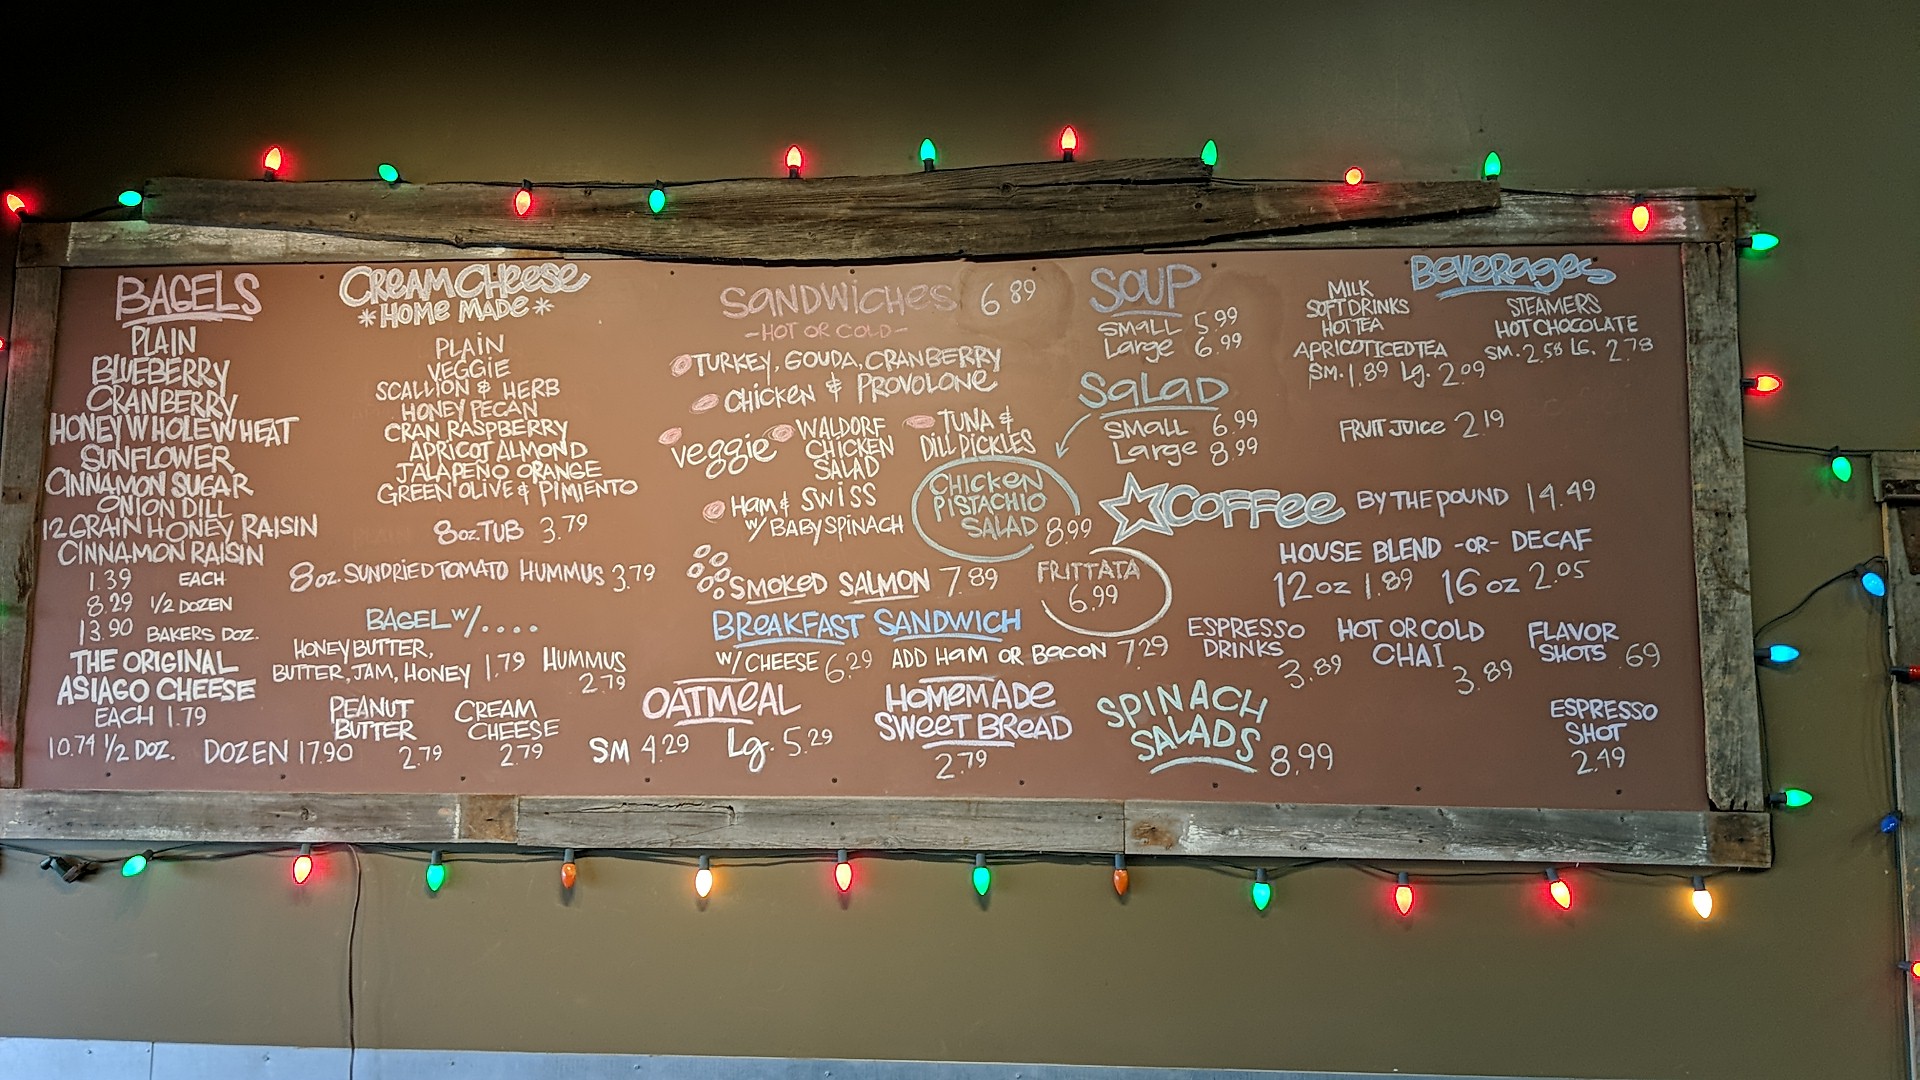 BAGELS
PLAIN
BLUEBERRY
CRANBERRY
HONEY WHOLE WHEAT
SUNFLOWER
CINNAMON SUGAR
ONION DILL
12 GRAIN HONEY RAISIN
CINNAMON RAISIN
1.39 EACH
8.29 1/2 DOZEN
13.90 BAKERS DOZ.
THE ORIGINAL
ASIAGO CHEESE
EACH 1.79
10.74 1/2 DOZ. DOZEN 17.90
CREAM CHEESE
*HOME MADE*
PLAIN
VEGGIE
SCALLION & HERB
HONEY PECAN
CRAN RASPBERRY
APRICOT ALMOND
JALAPEÑO ORANGE
GREEN OLIVE & PIMIENTO
8oz. TUB 3.79
8oz. SUNDRIED TOMATO HUMMUS 3.79
BAGEL W/....
HONEY BUTTER,
BUTTER, JAM, HONEY 1.79
HUMMUS
2.79
PEANUT
BUTTER
2.79
CREAM
CHEESE
2.79
SANDWICHES 6.89
-HOT OR COLD-
TURKEY, GOUDA, CRANBERRY
CHICKEN & PROVOLONE
Veggie
WALDORF
CHICKEN
SALAD
TUNA &
DILL PICKLES
HAM & SWISS
W/ BABY SPINACH
CHICKEN
PISTACHIO
SALAD 8.99
SMOKED SALMON 7.89
FRITTATA
6.99
BREAKFAST SANDWICH
W/ CHEESE 6.29 ADD HAM OR BACON 7.29
OATMEAL
SM 4.29 Lg. 5.29
HOMEMADE
SWEET BREAD
2.79
SPINACH
SALADS 8.99
SOUP
SMALL 5.99
Large 6.99
SALAD
SMALL 6.99
Large 8.99
BEVERAGES
MILK
SOFT DRINKS
HOT TEA
APRICOT ICED TEA
SM. 1.89 Lg. 2.09
STEAMERS
HOT CHOCOLATE
SM. 2.58 LG. 2.78
FRUIT JUICE 2.19
COFFEE BY THE POUND 14.49
HOUSE BLEND -OR- DECAF
12 oz 1.89 16 oz 2.05
ESPRESSO
DRINKS
3.89
HOT OR COLD
CHAI
3.89
FLAVOR
SHOTS .69
ESPRESSO
SHOT
2.49